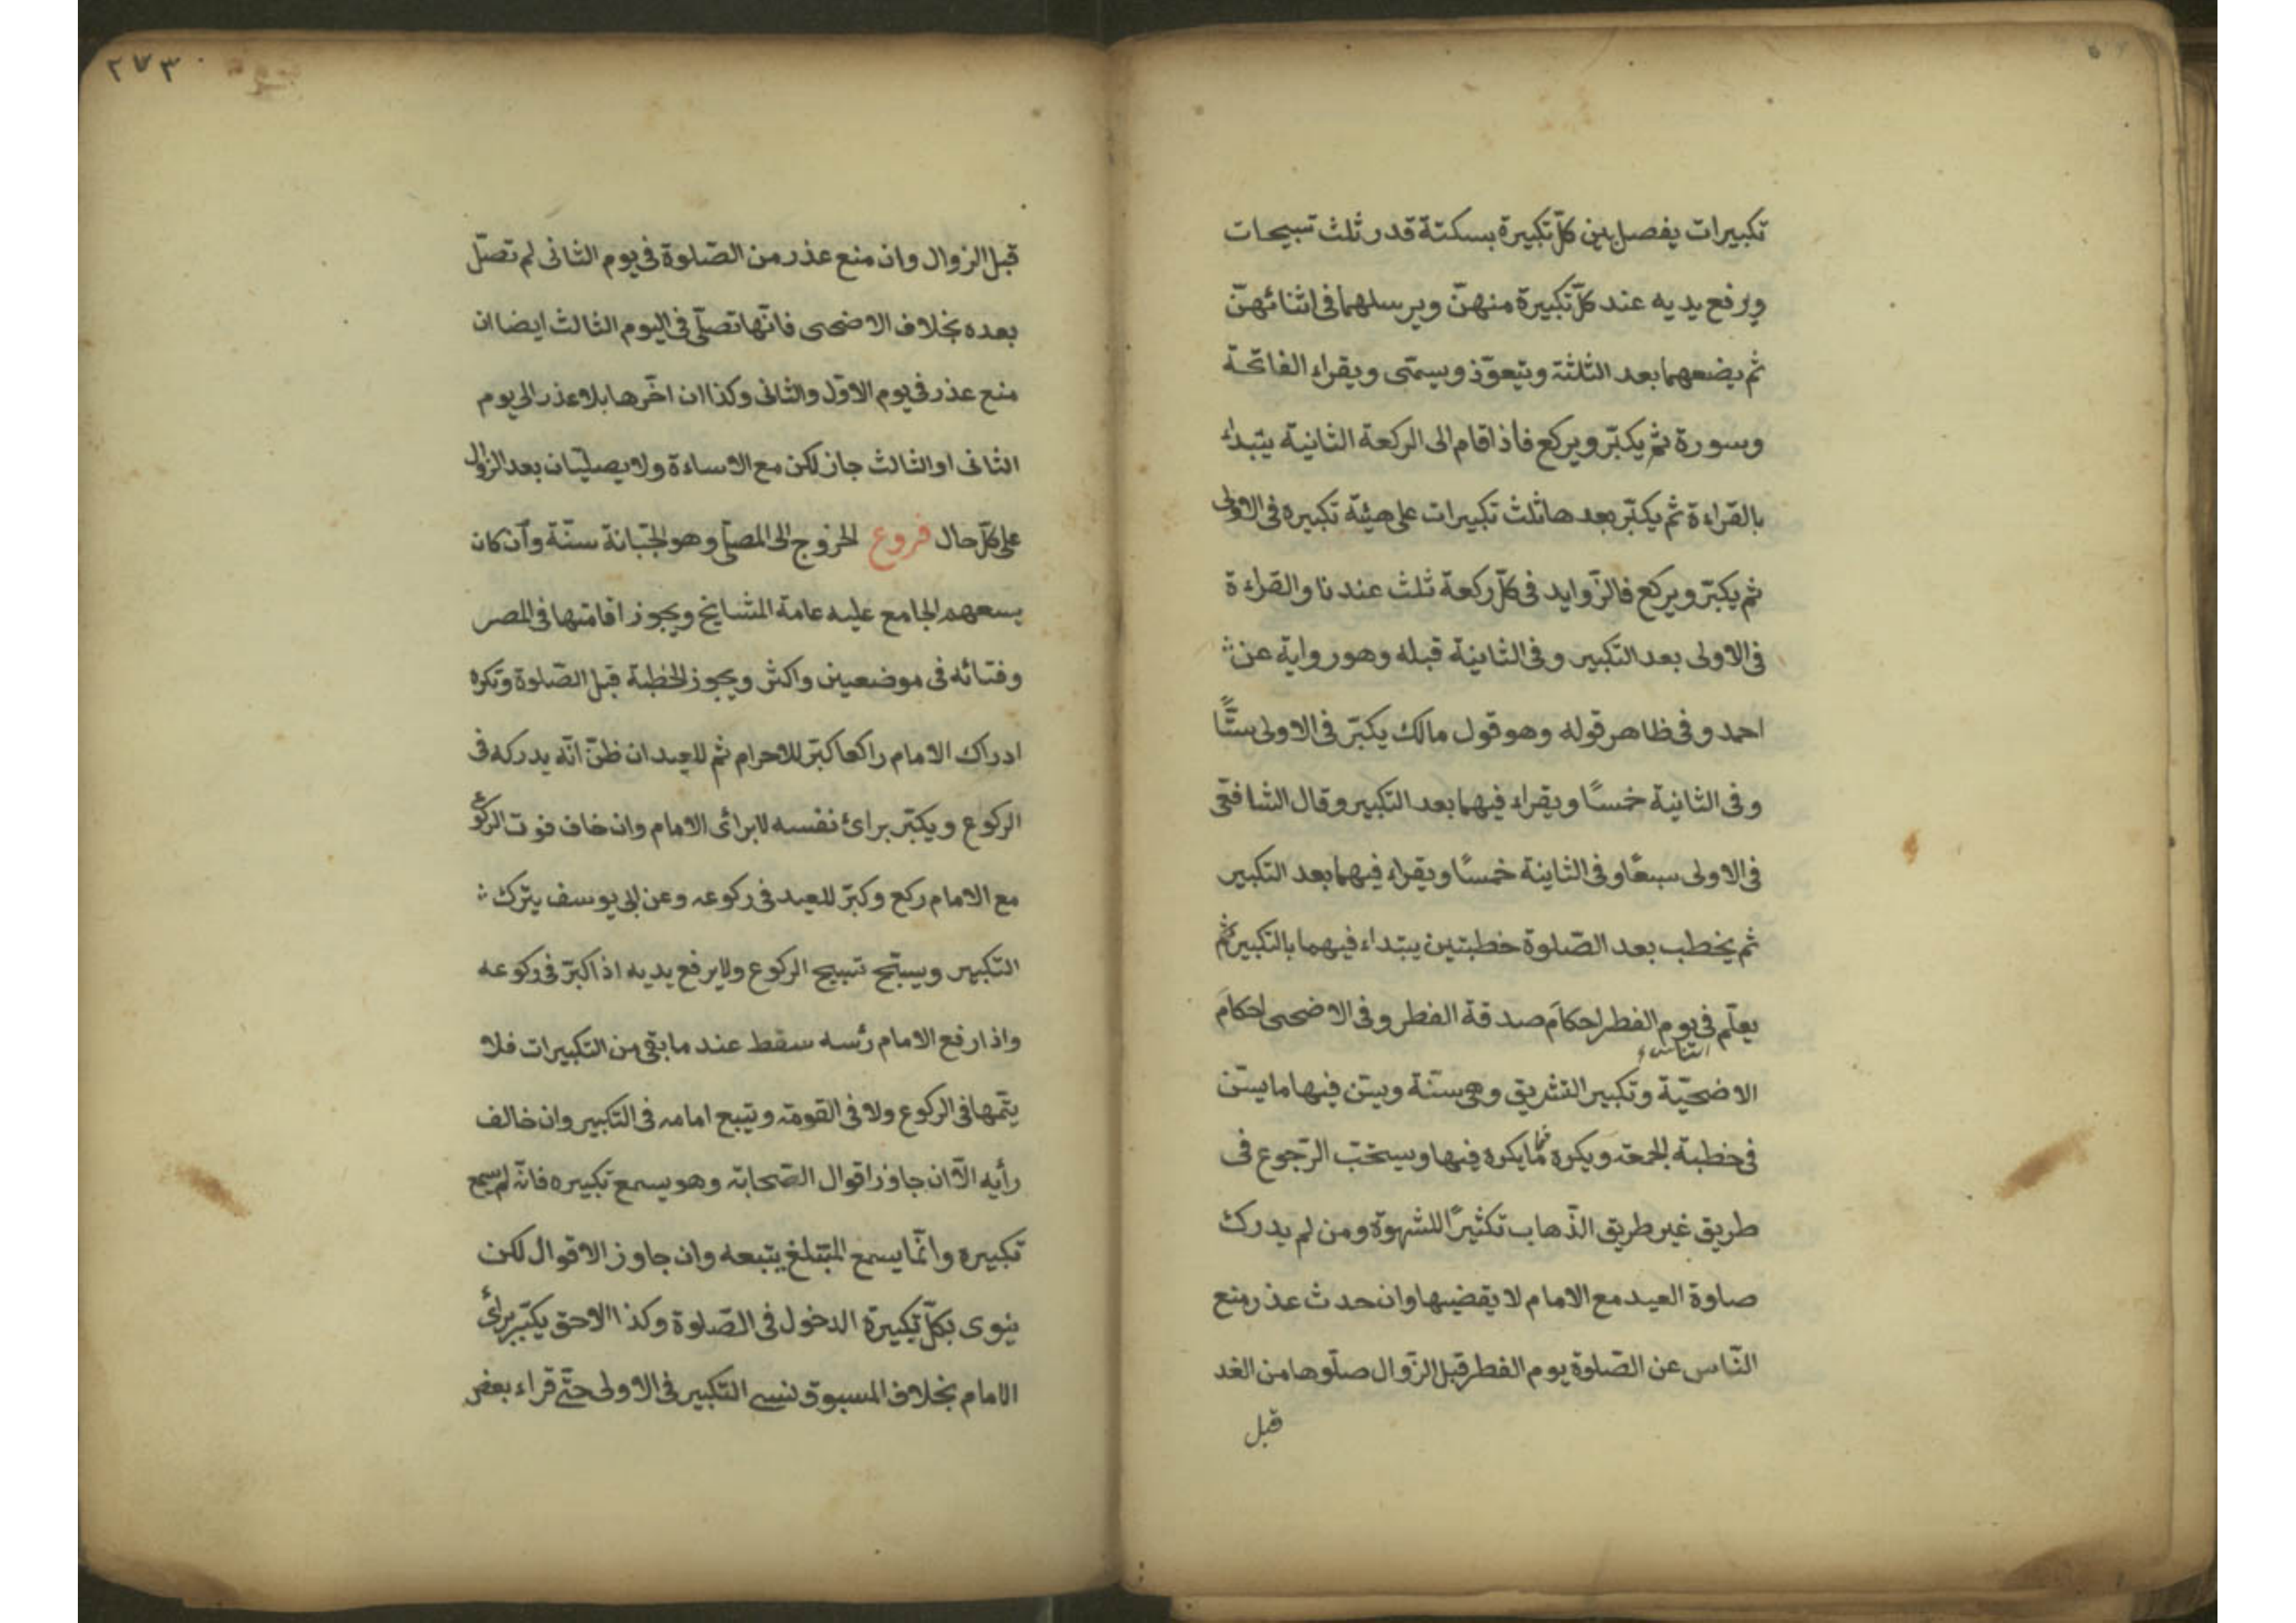 تكبيرات يفصل بين كلّ تكبيرة بسكتة قدر ثلث تسبيحات
ويرفع يديه عند كلّ تكبيرة منهنّ ويرسلهما فى اثنائهنّ
ثم يضعهما بعد الثلثة ويتعوّذ ويسمّى ويقراء الفاتحة
وسورة ثم يكبّر ويركع فاذا قام الى الركعة الثانية يبتداء
بالقراءة ثم يكبّر بعدها ثلث تكبيرات على هيئة تكبيره فى الاولى
ثم يكبّر ويركع فالزّوايد فى كلّ ركعة ثلث عندنا والقراءة
فى الاولى بعد التكبير وفى الثانية قبله وهو رواية عن
احمد وفى ظاهر قوله وهو قول مالك يكبّر فى الاولى ستًّا
وفى الثانية خمسًا ويقراء فيهما بعد التكبير وقال الشافعى
فى الاولى سبعًا وفى الثانية خمسًا ويقراء فيهما بعد التكبير
ثم يخطب بعد الصّلوة خطبتين يبتداء فيهما بالتكبير ثم
يعلّم فى يوم الفطر احكامَ صدقة الفطر وفى الاضحى احكامَ
النّاس
الاضحيّة وتكبير التشريق وهى سنّة ويسنّ فيها ما يسنّ
فى خطبة الجمعة ويكره ما يكره فيها ويستحبّ الرّجوع فى
طريق غير طريق الذّهاب تكثيرًا للشهوة ومن لم يدرك
صلوة العيد مع الامام لا يقضيها وان حدث عذر منع
النّاس عن الصّلوة يوم الفطر قبل الزّوال صلّوها من الغد
قبل
٢٧٣
قبل الزوال وان منع عذر من الصّلوة فى يوم الثانى لم تصلّ
بعده بخلاف الاضحى فانّها تصلّى فى اليوم الثالث ايضا ان
منع عذر فى يوم الاوّل والثانى وكذا ان اخّرها بلا عذر الى يوم
الثانى او الثالث جاز لكن مع الاساءة ولا يصلّيان بعد الزوال
على كلّ حال فروع الخروج الى المصلّى وهو الجبّانة سنّة وان كان
يسعهم الجامع عليه عامة المشايخ ويجوز اقامتها فى المصر
وفنائه فى موضعين واكثر ويجوز الخطبة قبل الصّلوة وتكره
ادراك الامام راكعا كبّر للاحرام ثم للعيد ان ظنّ انّه يدركه فى
الركوع ويكبّر برائ نفسه لا برائى الامام وان خاف فوت الركوع
مع الامام ركع وكبّر للعيد فى ركوعه وعن ابى يوسف يترك
التكبير ويسبّح تسبيح الركوع ولا يرفع يديه اذا كبّر فى ركوعه
واذا رفع الامام رئسه سقط عند ما بقى من التكبيرات فلا
يتمّها فى الركوع ولا فى القومة ويتبع امامه فى التكبير وان خالف
رأيه الّا ان جاوز اقوال الصّحابة وهو يسمع تكبيره فانّه لم يسمع
تكبيره وانّما يسمع المبتلغ يتبعه وان جاوز الاقوال لكن
ينوى بكلّ تكبيرة الدخول فى الصّلوة وكذا الاحق يكبّر برائ
الامام بخلاف المسبوق لنسى التكبير فى الاولى حتّى قراء بعض